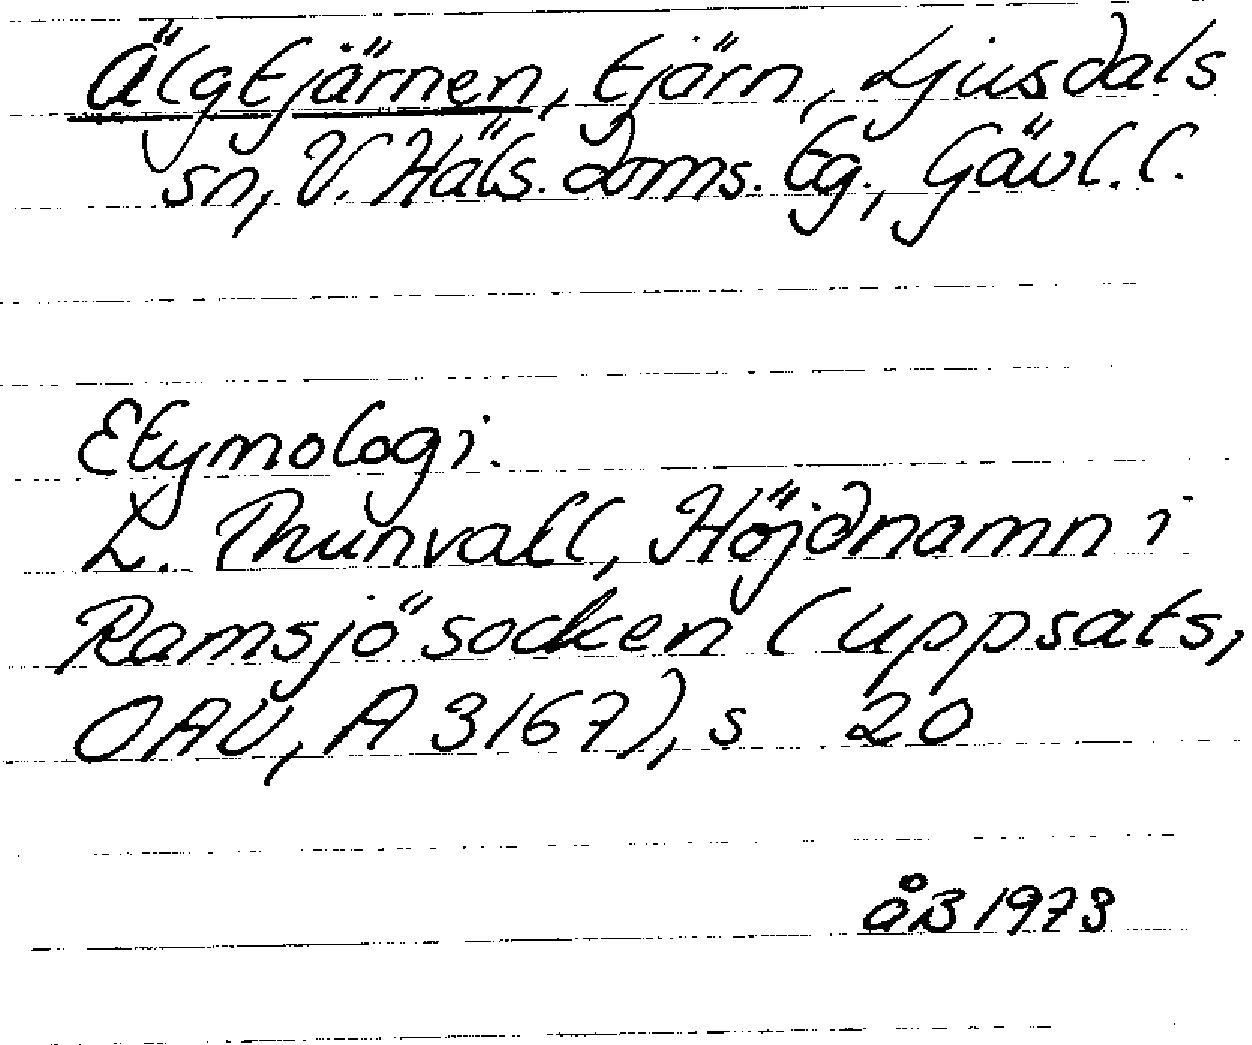 Älgtjärnen, tjärn, Ljusdals
sn, V. Häls. doms. tg., Gävl. l.
Etymologi.
L. Thunvall, Höjdnamn i
Ramsjö socken (uppsats,
OAU, A 3167), s 20
åB 1973